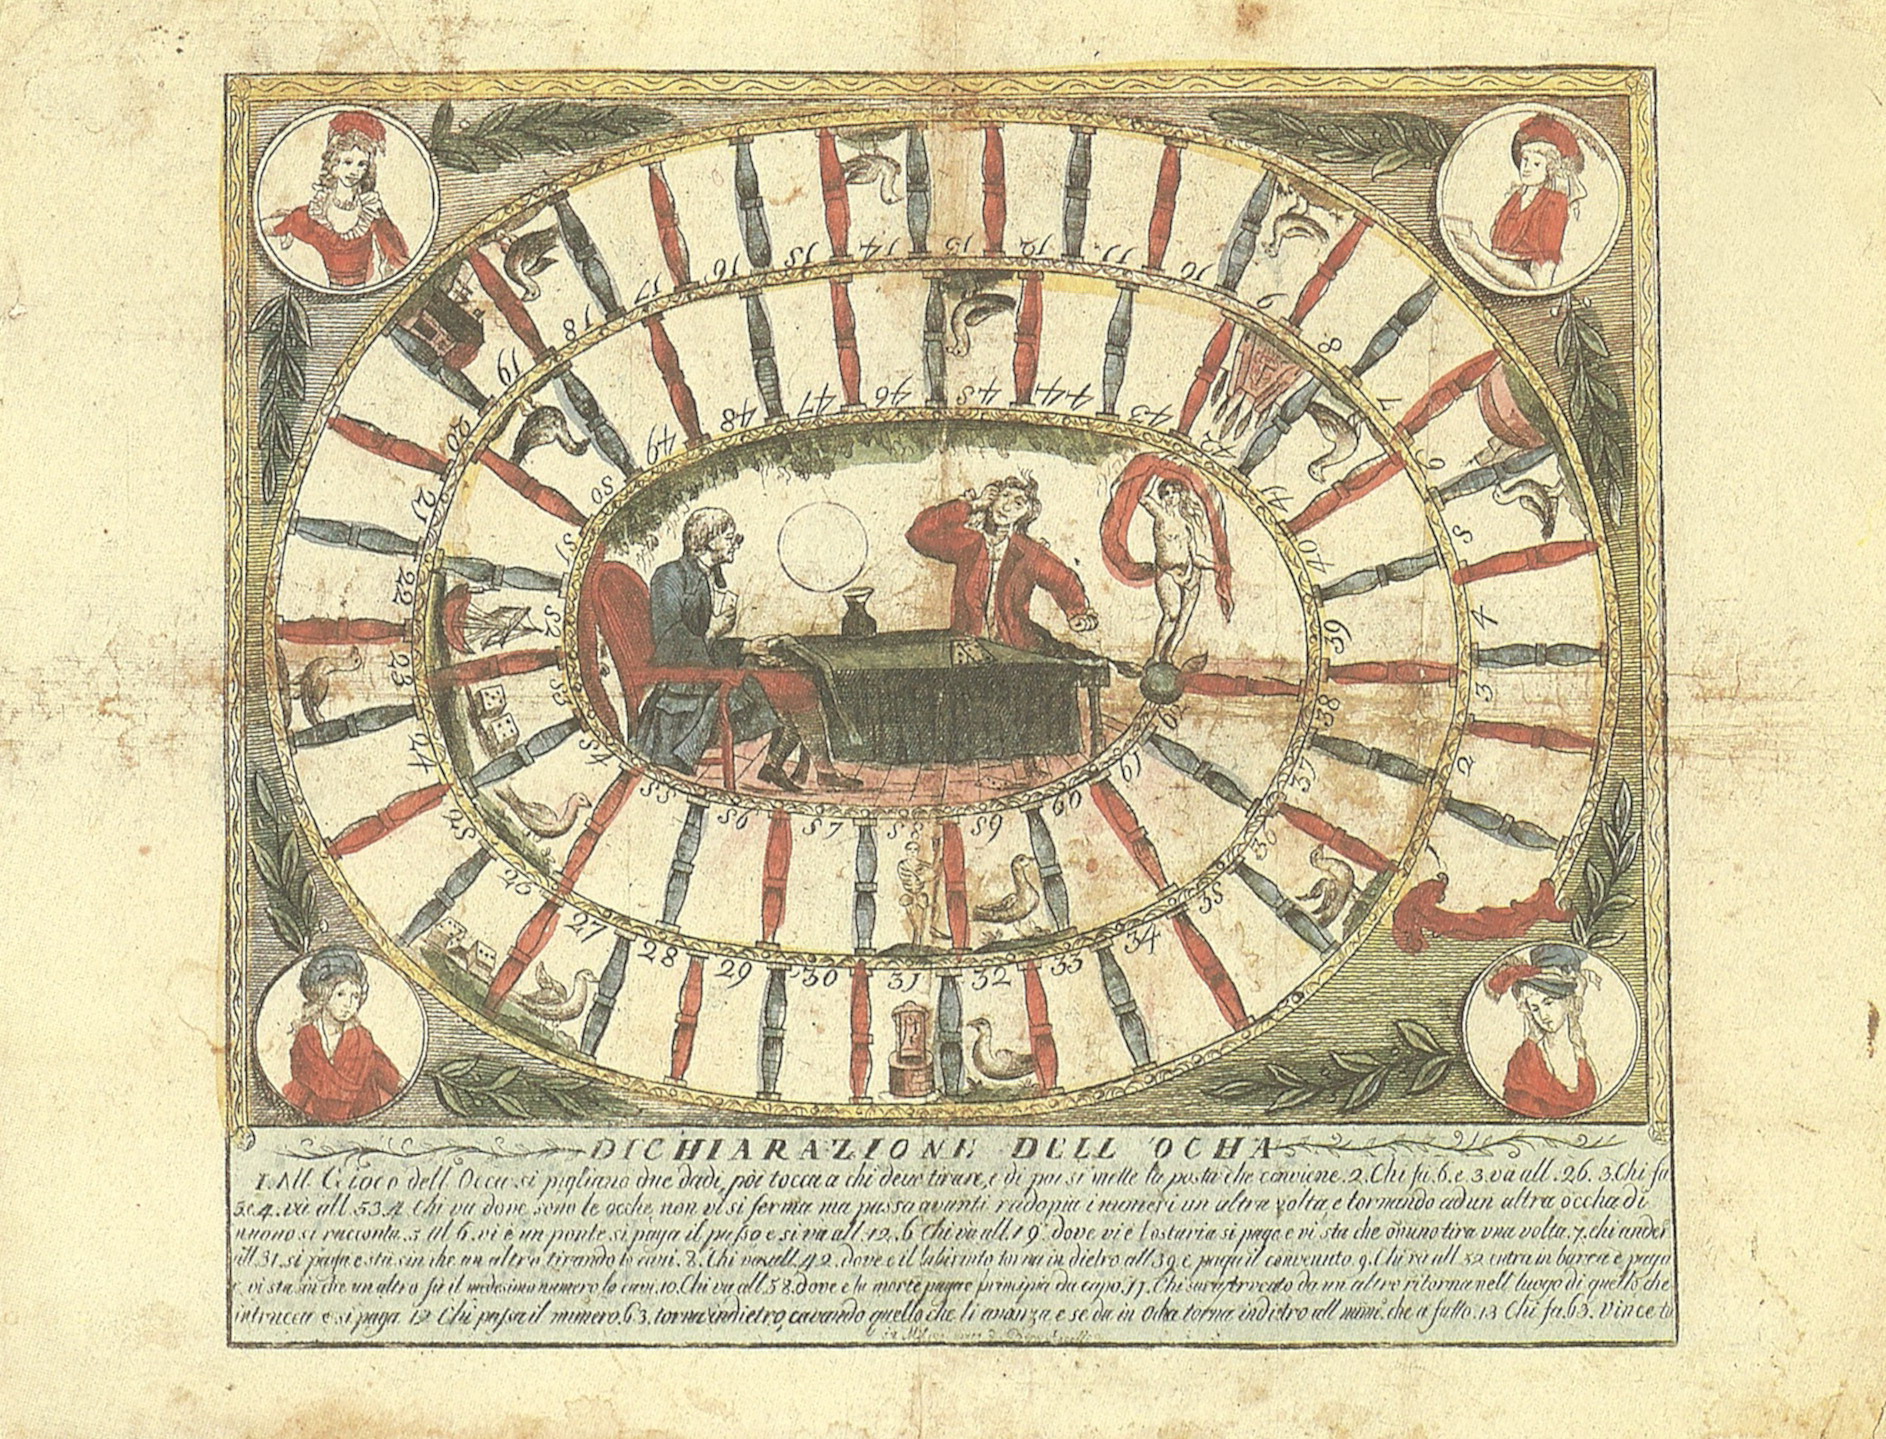 2
3
4
5
6
7
8
9
10
11
12
13
14
15
16
17
18
19
20
21
22
23
24
25
26
27
28
29
30
31
32
33
34
35
36
37
38
39
40
41
42
43
44
45
46
47
48
49
50
51
52
53
54
55
56
57
58
59
60
61
62
DICHIARAZIONE DELL'OCHA
1. All Gioco dell'Occa si pigliano due dadi, poi tocca a chi deve tirare, e di poi si mette la posta che conviene. 2. Chi fa. 6. e 3. va all. 26. 3. Chi fa
5. e 4. va all. 53. 4. Chi va dove sono le ocche, non vi si ferma ma passa avanti radopia i numeri un altra volta, e tornando ad un altra occha di
nuono si racconta. 5. Al 6. vi è un ponte si paga il passo e si va all. 12. 6. Chi va all. 19. dove vi è l'ostaria si paga e vi sta che ognuno tira una volta. 7. chi ander
all. 31. si paga e sta sin che un altro tirando lo cavi. 8. Chi va all. 42. dove e il labirinto torna in dietro all. 39 e paga il convenuto. 9. Chi va all. 52 entra in barca e paga
e vi sta sin che un altro fa il medesimo numero lo cavi. 10. Chi va all. 58. dove e la morte paga e principia da capo. 11. Chi sara trovato da un altro ritorna nell luogo di quello che
intracca e si paga. 12 Chi passa il numero. 63. torna indietro, cavando quello che li avanza e se da in Ocha torna indietro all nume. che a fatto. 13 Chi fa. 63. vince tu